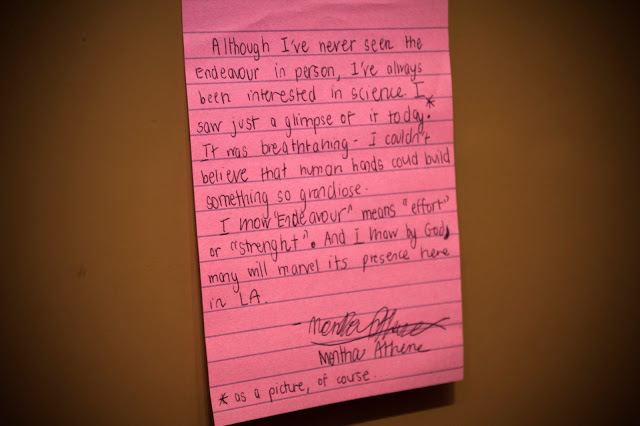 Although I've never seen the
Endeavour in person, I've always
been interested in science. I
saw just a glimpse of it today.*
It was breathtaking - I couldn't
believe that human hands could build
something so grandiose.
I know "Endeavour" means "effort"
or "strenght". And I know by God,
many will marvel its presence here
in LA.
Athene
* as a picture, of course.